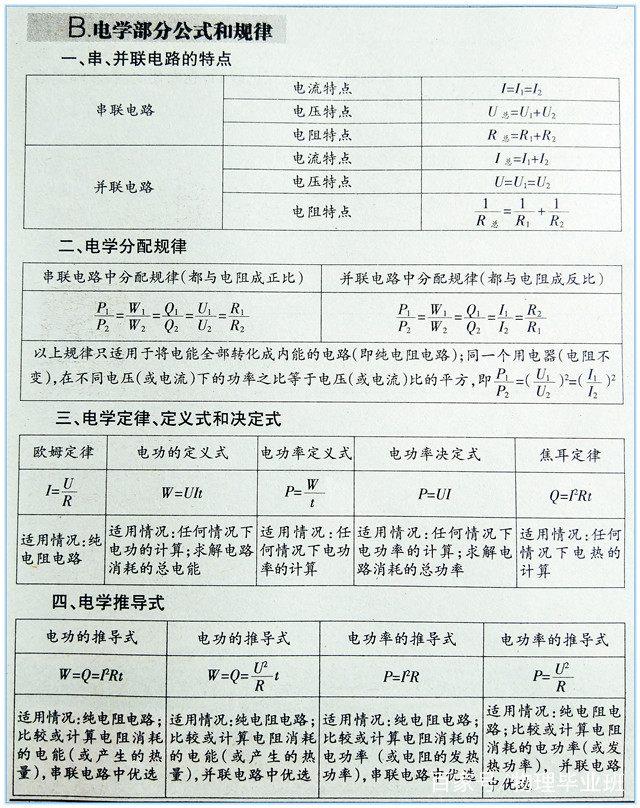 B.电学部分公式和规律
一、串、并联电路的特点
串联电路
电流特点 I=I₁=I₂
电压特点 U总=U₁+U₂
电阻特点 R总=R₁+R₂
并联电路
电流特点 I总=I₁+I₂
电压特点 U=U₁=U₂
电阻特点 1/R总=1/R₁+1/R₂
二、电学分配规律
串联电路中分配规律(都与电阻成正比) 并联电路中分配规律(都与电阻成反比)
P₁/P₂=W₁/W₂=Q₁/Q₂=U₁/U₂=R₁/R₂ P₁/P₂=W₁/W₂=Q₁/Q₂=I₁/I₂=R₂/R₁
以上规律只适用于将电能全部转化成内能的电路(即纯电阻电路);同一个用电器(电阻不
变),在不同电压(或电流)下的功率之比等于电压(或电流)比的平方,即P₁/P₂=(U₁/U₂)²=(I₁/I₂)²
三、电学定律、定义式和决定式
欧姆定律 电功的定义式 电功率定义式 电功率决定式 焦耳定律
I=U/R W=UIt P=W/t P=UI Q=I²Rt
适用情况:纯
电阻电路
适用情况:任何情况下
电功的计算;求解电路
消耗的总电能
适用情况:任
何情况下电功
率的计算
适用情况:任何情况下
电功率的计算;求解电
路消耗的总功率
适用情况:任何
情况下电热的
计算
四、电学推导式
电功的推导式 电功的推导式 电功率的推导式 电功率的推导式
W=Q=I²Rt W=Q=U²/R t P=I²R P=U²/R
适用情况:纯电阻电路;
比较或计算电阻消耗
的电能(或产生的热
量),串联电路中优选
适用情况:纯电阻电路;
比较或计算电阻消耗
的电能(或产生的热
量),并联电路中优选
适用情况:纯电阻电路;
比较或计算电阻消耗的
电功率(或电阻的发热
功率),串联电路中优选
适用情况:纯电阻电
路;比较或计算电阻
消耗的电功率(或发
热功率),并联电路
中优选